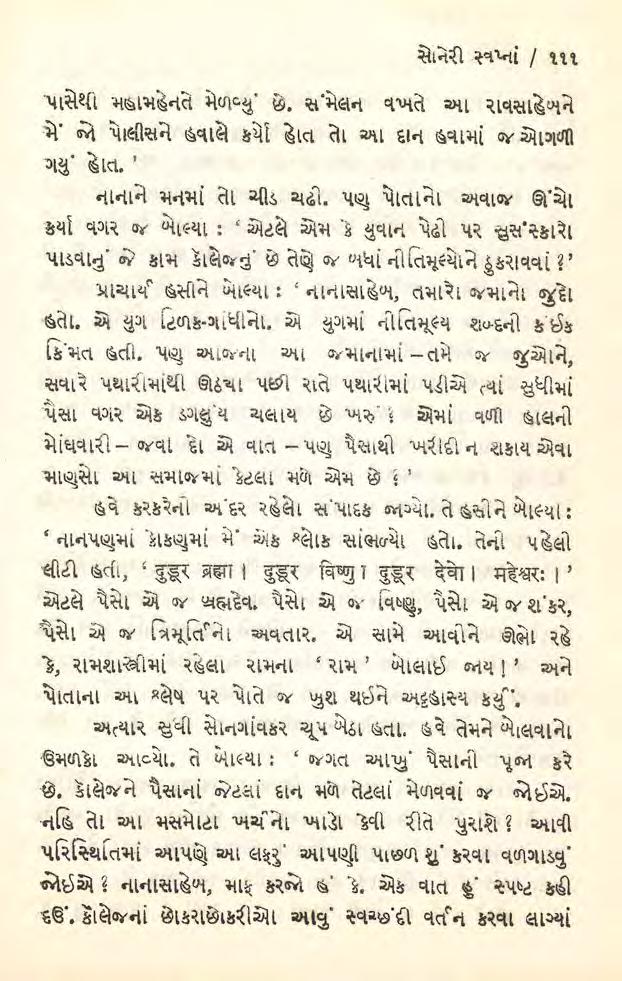 સોનેરી સ્વપ્નાં / ૧૧૧
પાસેથી મહામહેનતે મેળવ્યું છે. સંમેલન વખતે આ રાવસાહેબને
મેં જો પોલીસને હવાલે કર્યો હોત તો આ દાન હવામાં જ ઓગળી
ગયું હોત.'
નાનાને મનમાં તો ચીડ ચઢી. પણ પોતાનો અવાજ ઊંચો
કર્યા વગર જ બોલ્યા : ‘ એટલે એમ કે યુવાન પેઢી પર સુસંસ્કારો
પાડવાનું જે કામ કૉલેજનું છે તેણે જ બધાં નીતિમૂલ્યોને ઠુકરાવવાં ?’
પ્રાચાર્ય હસીને બોલ્યા : ‘ નાનાસાહેબ, તમારો જમાનો જુદો
હતો. એ યુગ ટિળક-ગાંધીનો. એ યુગમાં નીતિમૂલ્ય શબ્દની કંઈક
કિંમત હતી. પણ આજના આ જમાનામાં – તમે જ જુઓને,
સવારે પથારીમાંથી ઊઠચા પછી રાતે પથારીમાં પડીએ ત્યાં સુધીમાં
પૈસા વગર એક ડગલુંય ચલાય છે ખરું ? એમાં વળી હાલની
મોંઘવારી – જવા દો એ વાત – પણ પૈસાથી ખરીદી ન શકાય એવા
માણસો આ સમાજમાં કેટલા મળે એમ છે ?’
હવે કરકરેનો અંદર રહેલો સંપાદક જાગ્યો. તે હસીને બોલ્યા :
‘ નાનપણમાં કોકણમાં મેં એક શ્લોક સાંભળ્યો હતો. તેની પહેલી
લીટી હતી, ‘ दुडूर ब्रह्मा । दुडूर विष्णु । दुडूर देवो । महेश्वरः ।’
એટલે પૈસો એ જ બ્રહ્મદેવ. પૈસો એ જ વિષ્ણુ, પૈસો એ જ શંકર,
પૈસો એ જ ત્રિમૂર્તિનો અવતાર. એ સામે આવીને ઊભો રહે
કે, રામશાસ્ત્રીમાં રહેલા રામના ‘ રામ ’ બોલાઈ જાય !’ અને
પોતાના આ શ્લેષ પર પોતે જ ખુશ થઈને અટ્ટહાસ્ય કર્યું.
અત્યાર સુધી સોનગાંવકર ચૂપ બેઠા હતા. હવે તેમને બોલવાનો
ઉમળકો આવ્યો. તે બોલ્યા : ‘ જગત આખું પૈસાની પૂજા કરે
છે. કૉલેજને પૈસાનાં જેટલાં દાન મળે તેટલાં મેળવવાં જ જોઈએ.
નહિ તો આ મસમોટા ખર્ચનો ખાડો કેવી રીતે પુરાશે ? આવી
પરિસ્થિતિમાં આપણે આ લફરું આપણી પાછળ શું કરવા વળગાડવું
જોઇએ ? નાનાસાહેબ, માફ કરજો હં કે. એક વાત હું સ્પષ્ટ કહી
દઉં. કૉલેજનાં છોકરાછોકરીઓ આવું સ્વચ્છંદી વર્તન કરવા લાગ્યાં